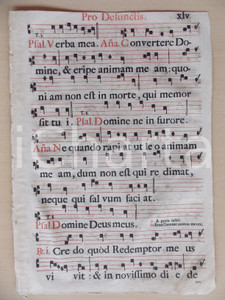 Pro Defunctis. xlv
Psal. Verba mea. Aña. Convertere Do-
mine, & eripe animam me am: quo-
ni am non est in morte, qui memor
sit tu i. Psal. Domine ne in furore.
Aña Ne quando rapi at ut le o animam
me am, dum non est qui re dimat,
neque qui sal vum faci at.
Psal. Domine Deus meus.
Cre do quòd Redemptor me us
vi vit: & in novissimo di e de